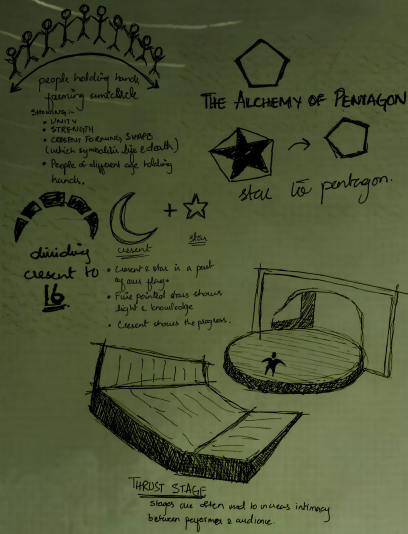 people holding hands
forming semicircle
SHOWING:-
• UNITY
• STRENGTH
• CRESENT FORMING SHAPE
(which symbolizes life & death)
• People of different age holding
hands.
THE ALCHEMY OF PENTAGON
star to pentagon.
dividing
cresent to
16
+
cresent
star
• Cresent & star is a part
of our flag.
• Five pointed stars shows
light & knowledge
• Cresent shows the progress.
THRUST STAGE
stages are often used to increas intimacy
between performer & audience.